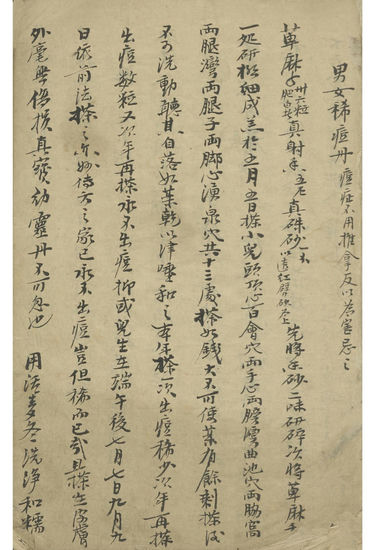 男女稀痘丹 痘症不用推拿反以爲害忌之
草麻子卅六粒肥白者真射香五厘真硃砂一水以透紅劈砂爲上先將香砂二味研碎次將草麻子
一処研極細成羔於五月五日搽小兒頭頂心百會穴兩手心兩膽灣曲池穴兩脇窩
兩腿灣兩腿子兩脚心湧泉穴共十三處搽如錢大不可使藥有餘剩搽後
不可洗動聽其自落如藥乾以津唾和之本年搽次出痘稀少次年再搽
出痘數粒又次年再搽永不出痘抑或兒生在端午後七月七日九月九
日依前法搽之亦妙傳方之家已永不出痘豈但稀而已哉且搽至皮膚
外毫無傷損真寶幼靈丹不可忽也 用法麦冬洗淨和糯